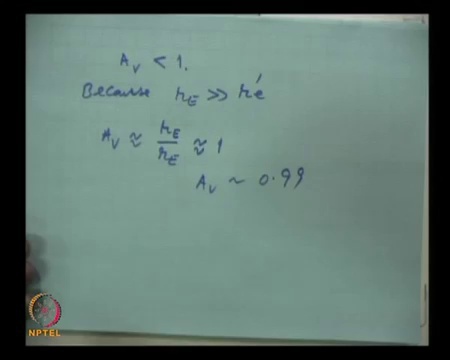 A_v < 1.
Because r_E >> r'e
A_v ≈ r_E / r_E ≈ 1
A_v ~ 0.99
NPTEL